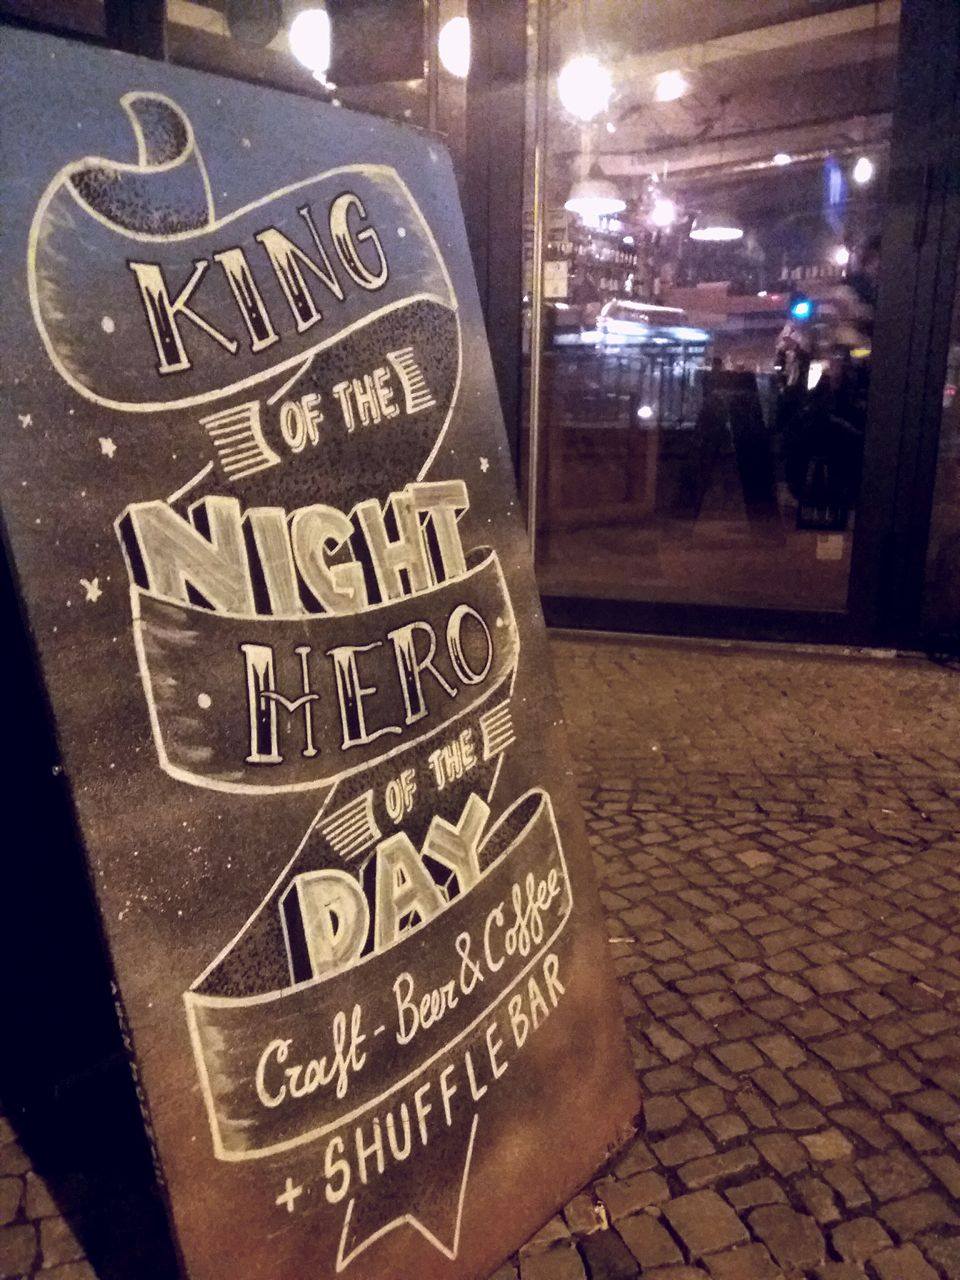 KING
OF THE
NIGHT
HERO
OF THE
DAY
Craft-Beer & Coffee
+ SHUFFLEBAR